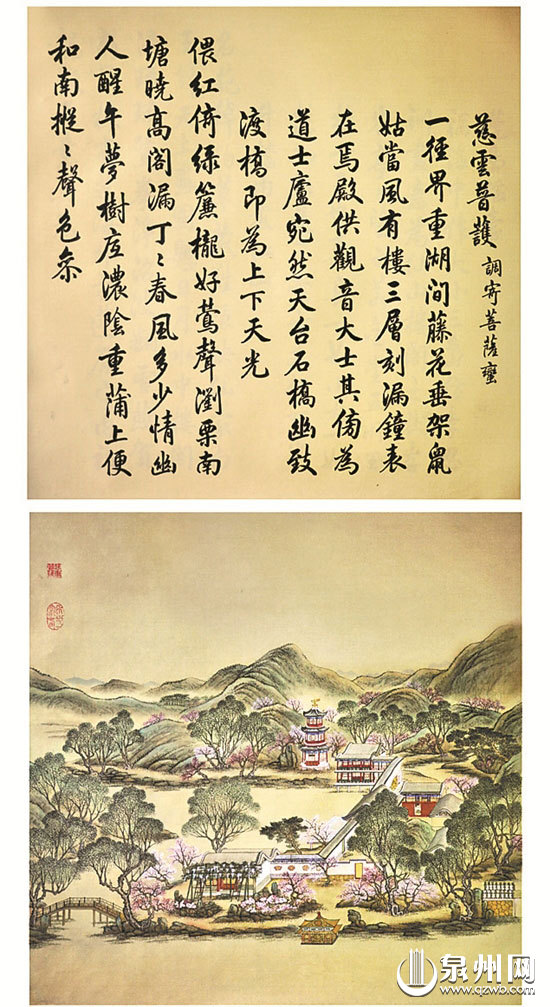 慈雲普護 調寄菩薩蠻
一徑界重湖間藤花垂架鼠
姑當風有樓三層刻漏鐘表
在焉殿供觀音大士其傍為
道士廬宛然天台石橋幽致
渡橋即為上下天光
偎紅倚綠簾櫳好鶯聲瀏栗南
塘曉高閣漏丁〻春風多少情幽
人醒午夢樹底濃陰重蒲上便
和南摐〻聲色參
泉州网
www.qzwb.com